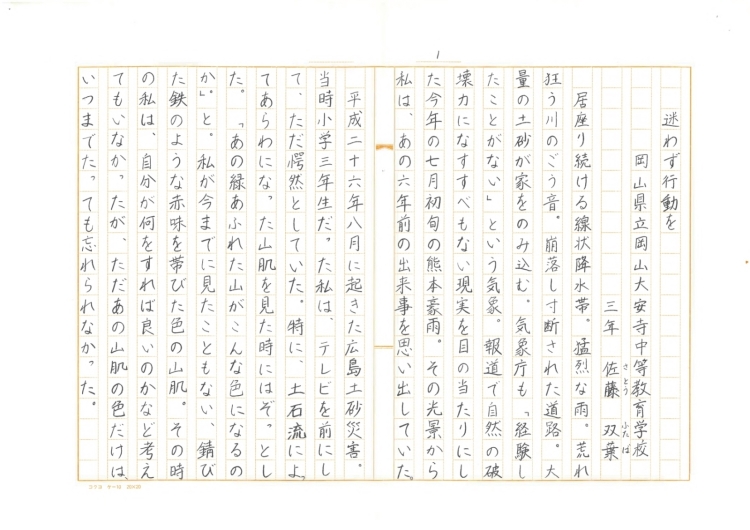 1
迷わず行動を
岡山県立岡山大安寺中等教育学校
三年 佐藤 双葉
さとう ふたば
居座り続ける線状降水帯。猛烈な雨。荒れ
狂う川のごう音。崩落し寸断された道路。大
量の土砂が家をのみ込む。気象庁も「経験し
たことがない」という気象。報道で自然の破
壊力になすすべもない現実を目の当たりにし
た今年の七月初旬の熊本豪雨。その光景から
私は、あの六年前の出来事を思い出していた。
平成二十六年八月に起きた広島土砂災害。
当時小学三年生だった私は、テレビを前にし
て、ただ愕然としていた。特に、土石流によっ
てあらわになった山肌を見た時にはぞっとし
た。「あの緑あふれた山がこんな色になるの
か。」と。私が今までに見たこともない、錆び
た鉄のような赤味を帯びた色の山肌。その時
の私は、自分が何をすれば良いのかなど考え
てもいなかったが、ただあの山肌の色だけは、
いつまでたっても忘れられなかった。